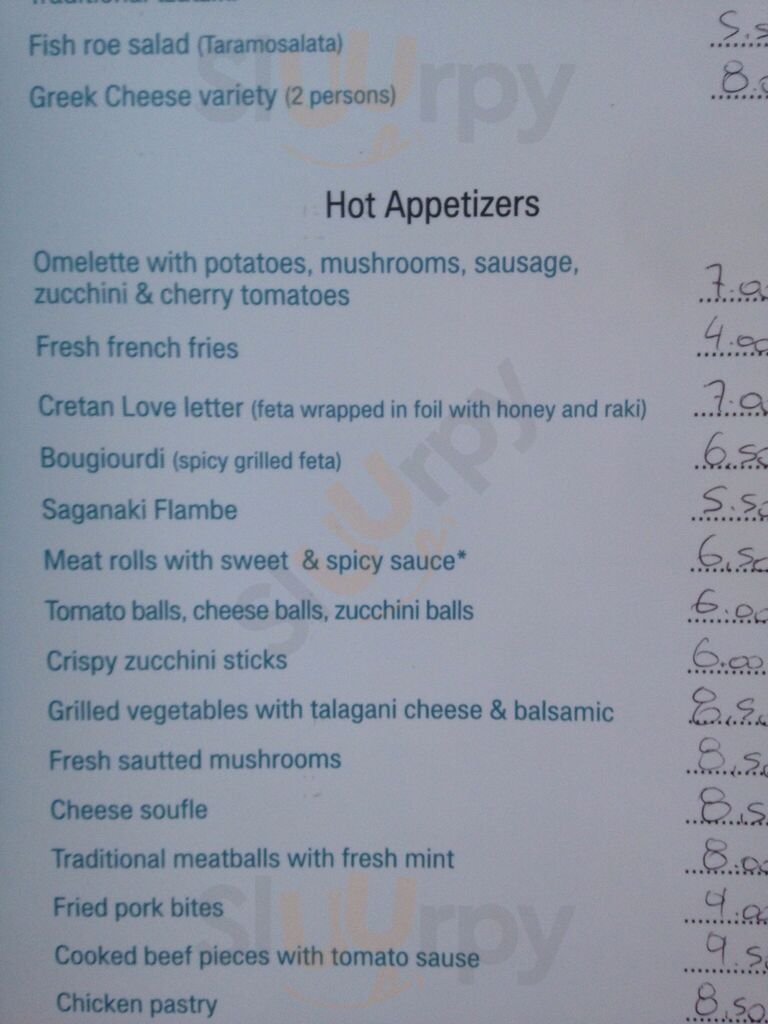 Fish roe salad (Taramosalata)
Greek Cheese variety (2 persons) 8.
Hot Appetizers
Omelette with potatoes, mushrooms, sausage,
zucchini & cherry tomatoes 7.0
Fresh french fries 4.00
Cretan Love letter (feta wrapped in foil with honey and raki) 7.0
Bougiourdi (spicy grilled feta) 6.50
Saganaki Flambe 5.50
Meat rolls with sweet & spicy sauce* 6,50
Tomato balls, cheese balls, zucchini balls 6.00
Crispy zucchini sticks 6.00
Grilled vegetables with talagani cheese & balsamic 8,5
Fresh sautted mushrooms 8,50
Cheese soufle 8,5
Traditional meatballs with fresh mint 8.00
Fried pork bites 9.00
Cooked beef pieces with tomato sause 9.5
Chicken pastry 8,50
slUUrpy
slUUrpy
slUUrpy